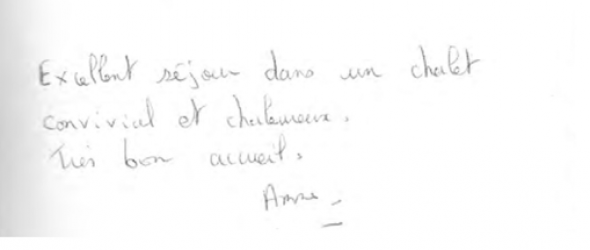 Excellent séjour dans un chalet
convivial et chaleureux.
Très bon accueil.
Anne